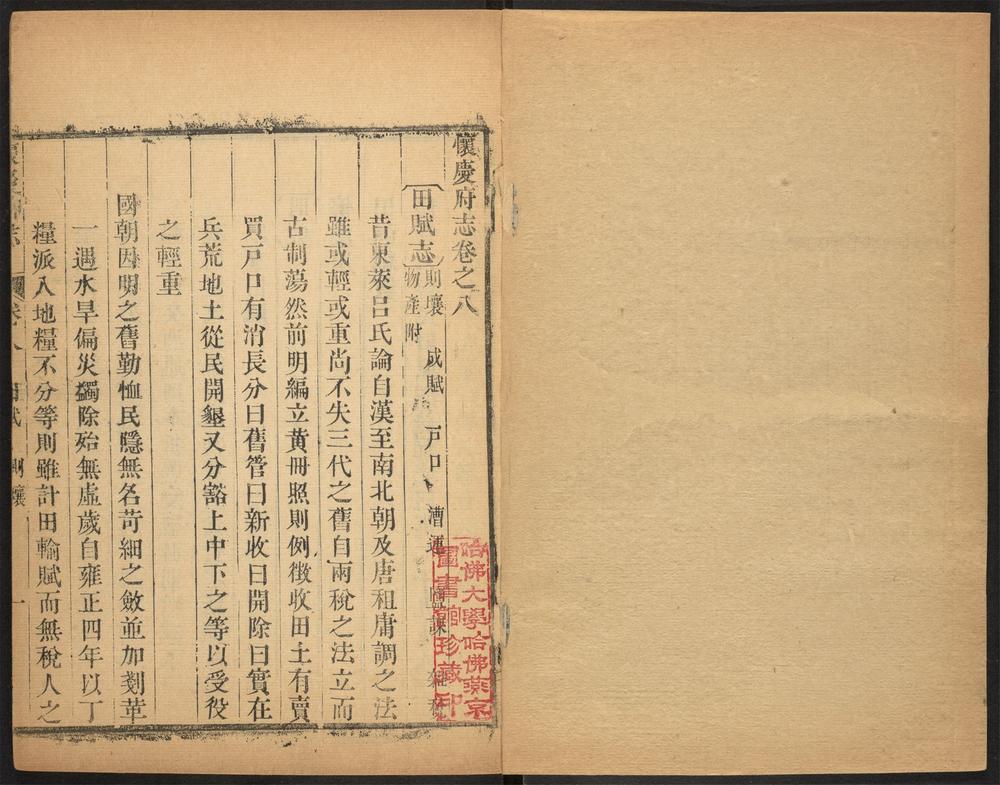 懷慶府志卷之八
田賦志 則壤 成賦 戶口 漕運 鹽課
物產附
昔東萊呂氏論自漢至南北朝及唐租庸調之法
雖或輕或重尚不失三代之舊自兩稅之法立而
古制蕩然前明編立黃冊照則例徵收田土有賣
買戶口有消長分曰舊管曰新收曰開除曰實在
兵荒地土從民開墾又分豁上中下之等以受役
之輕重
國朝因明之舊勤恤民隱無名苛細之斂並加剗革
一遇水旱偏災蠲除殆無虛歲自雍正四年以丁
糧派入地糧不分等則雖計田輸賦而無稅人之
卷八 田賦 則壤 一
哈佛大學哈佛燕京
圖書館珍藏印